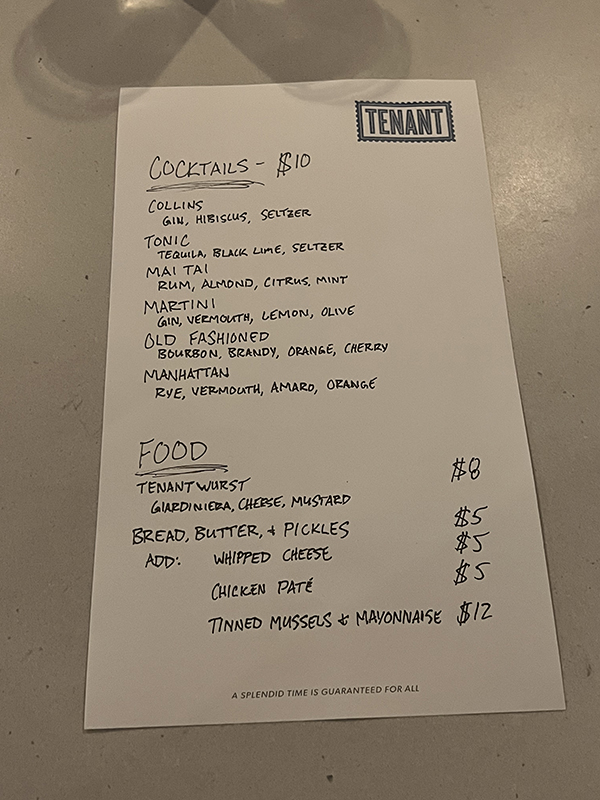 TENANT
COCKTAILS - $10
COLLINS
GIN, HIBISCUS, SELTZER
TONIC
TEQUILA, BLACK LIME, SELTZER
MAI TAI
RUM, ALMOND, CITRUS, MINT
MARTINI
GIN, VERMOUTH, LEMON, OLIVE
OLD FASHIONED
BOURBON, BRANDY, ORANGE, CHERRY
MANHATTAN
RYE, VERMOUTH, AMARO, ORANGE
FOOD
TENANTWURST $8
GIARDINIERA, CHEESE, MUSTARD
BREAD, BUTTER, + PICKLES $5
ADD: WHIPPED CHEESE $5
CHICKEN PATÉ $5
TINNED MUSSELS & MAYONNAISE $12
A SPLENDID TIME IS GUARANTEED FOR ALL